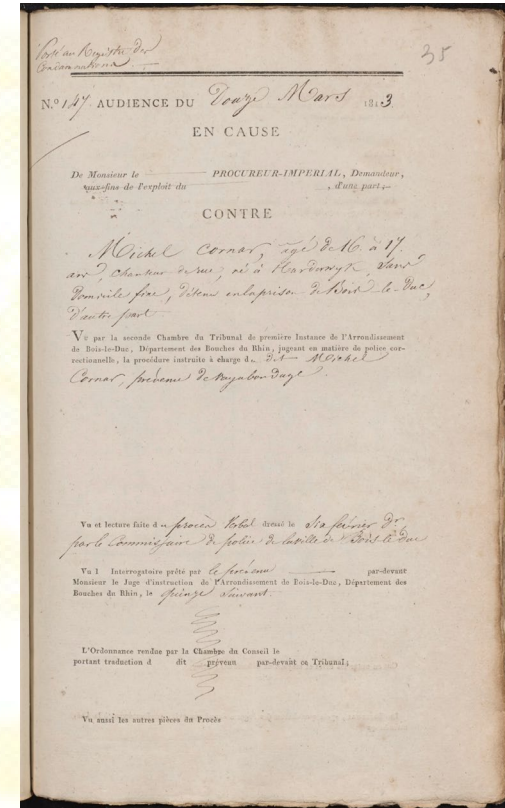 Porté au Registre des
Condamnations
35
N.º 147. AUDIENCE DU Douze Mars 1813.
EN CAUSE
De Monsieur le PROCUREUR-IMPERIAL, Demandeur,
aux fins de l'exploit du , d'une part,
CONTRE
Michel Cornar, agé de 16. à 17.
ans, chanteur de rue, né à Harderwyk, sans
domicile fixe, détenu en la prison de Bois-le-Duc,
d'autre part
Vu par la seconde Chambre du Tribunal de première Instance de l'Arrondissement
de Bois-le-Duc, Département des Bouches du Rhin, jugeant en matière de police cor-
rectionnelle, la procédure instruite à charge du dit Michel
Cornar, prévenu de vagabondage.
Vu et lecture faite du procès Verbal dressé le six février dr.
par le Commissaire de police de la ville de Bois-le-Duc
Vu l Interrogatoire prêté par le prévenu par-devant
Monsieur le Juge d'instruction de l'Arrondissement de Bois-le-Duc, Département des
Bouches du Rhin, le quinze suivant.
L'Ordonnance rendue par la Chambre du Conseil le
portant traduction d dit prévenu par-devant ce Tribunal;
Vu aussi les autres pièces du Procès